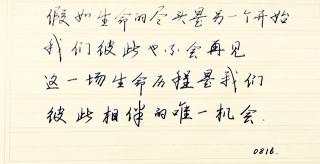 假如生命的尽头是另一个开始
我们彼此也不会再见
这一场生命历程是我们
彼此相伴的唯一机会.
0816.